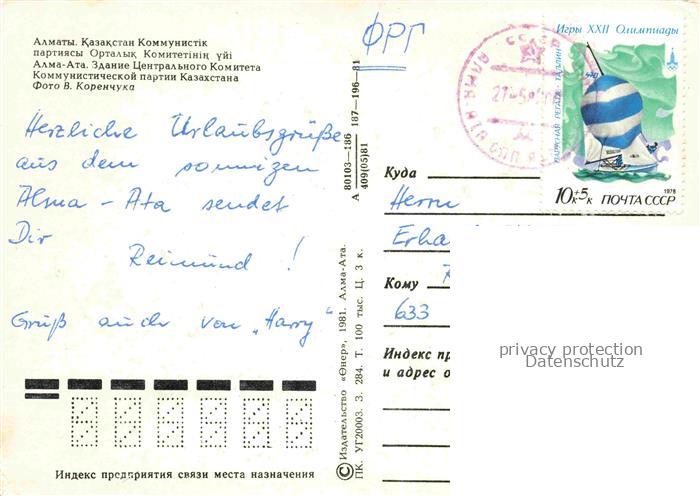 Алматы. Қазақстан Коммунистік
партиясы Орталық Комитетінің үйі
Алма-Ата. Здание Центрального Комитета
Коммунистической партии Казахстана
Фото В. Коренчука
Herzliche Urlaubsgrüße
aus dem sonnigen
Alma-Ata sendet
Dir
Reimund !
Gruß auch von "Harry"
Индекс предприятия связи места назначения
© Издательство «Өнер», 1981. Алма-Ата.
ПК. УГ20003. З. 284. Т. 100 тыс. Ц. 3 к.
А 80103—186 187—196—81
409(05)81
ФРГ
СССР
АЛМА-АТА
Игры XXII Олимпиады
ПАРУСНАЯ РЕГАТА · ТАЛЛИН
470
1978
10к+5к ПОЧТА СССР
Куда
Herrn
Erha
Кому
633
Индекс пр
и адрес о
privacy protection
Datenschutz